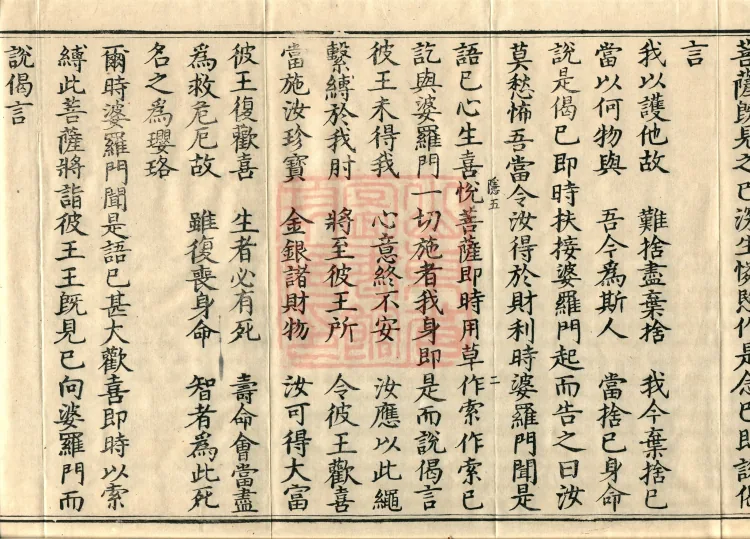 菩薩既見之已深生憐愍作是念已即說偈
言
我以護他故 難捨盡棄捨 我今棄捨已
當以何物與 吾今為斯人 當捨已身命
說是偈已即時扶接婆羅門起而告之曰汝
莫愁怖吾當令汝得於財利時婆羅門聞是
隂五 二
語已心生喜悅菩薩即時用草作索作索已
訖與婆羅門一切施者我身即是而說偈言
彼王未得我 心意終不安 汝應以此繩
繫縛於我肘 將至彼王所 令彼王歡喜
當施汝珍寶 金銀諸財物 汝可得大富
彼王復歡喜 生者必有死 壽命會當盡
為救危厄故 雖復喪身命 智者為此死
名之為瓔珞
爾時婆羅門聞是語已甚大歡喜即時以索
縛此菩薩將詣彼王王既見已向婆羅門而
說偈言